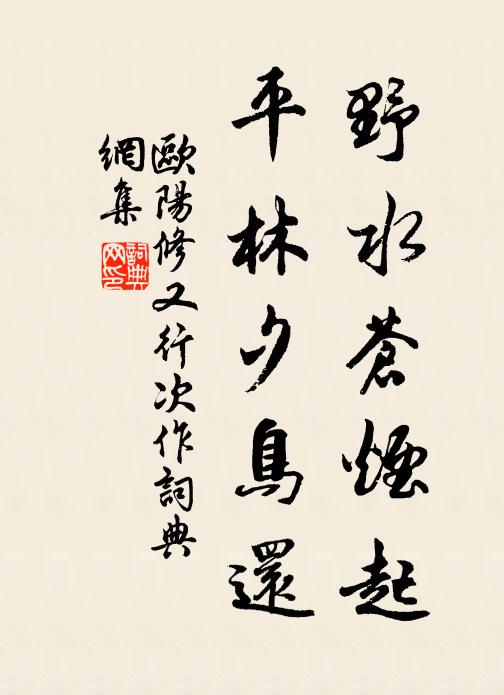 野水蒼煙起
平林夕鳥還
歐陽修又行次作詞典
網集
詞典
网印